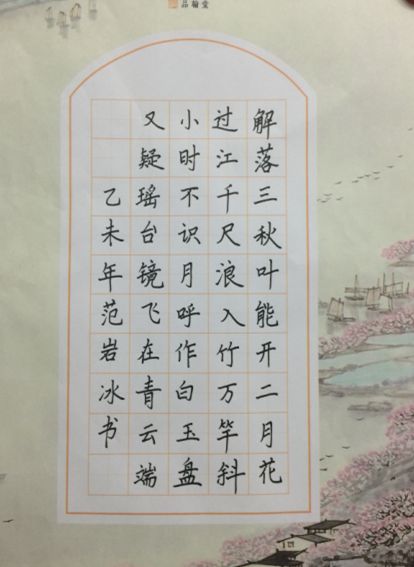 品翰堂
解落三秋叶能开二月花
过江千尺浪入竹万竿斜
小时不识月呼作白玉盘
又疑瑶台镜飞在青云端
乙未年范岩冰书